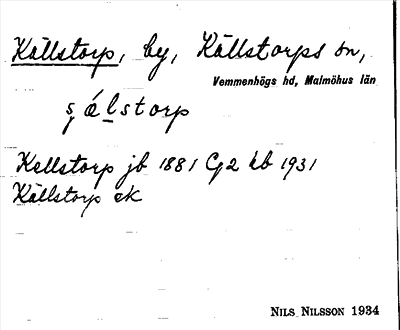 Källstorp, by, Källstorps sn,
Vemmenhögs hd, Malmöhus län
Kellstorp jb 1881 G2 kb 1931
Källstorp ek
NILS NILSSON 1934